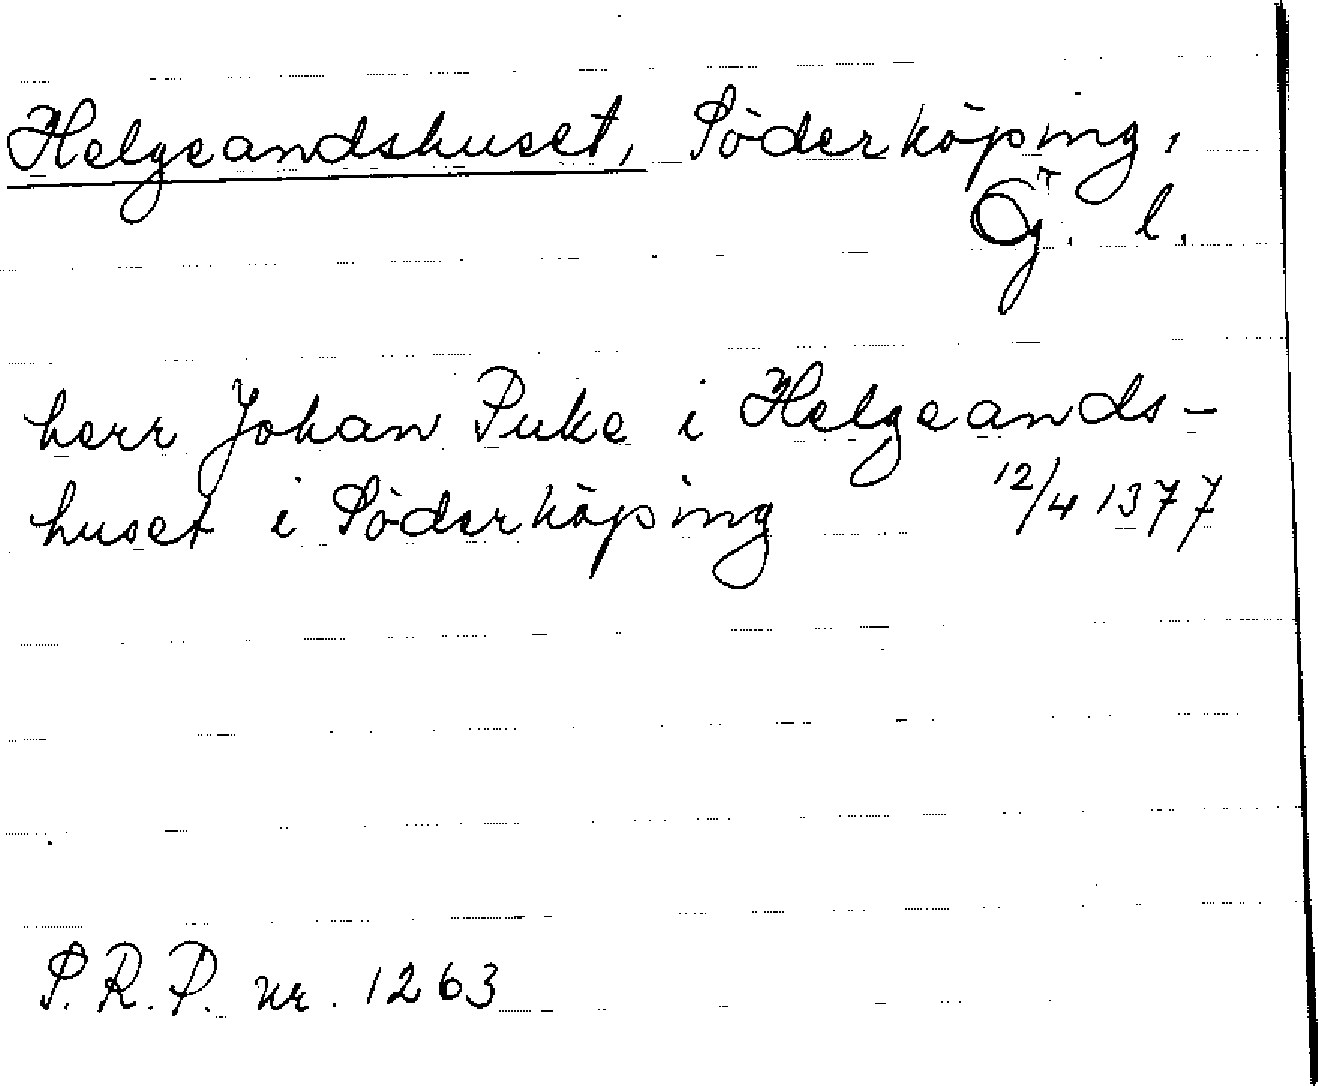 Helgeandshuset, Söderköping,
Ög. l.
herr Johan Puke i Helgeands-
huset i Söderköping 12/4 1377
S.R.P. nr. 1263